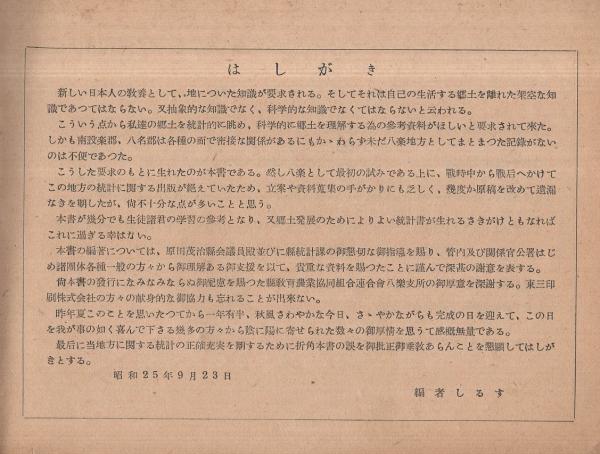 はしがき
新しい日本人の教養として、地についた知識が要求される。そしてそれは自己の生活する郷土を離れた架空な知
識であつてはならない。又抽象的な知識でなく、科学的な知識でなくてはならないと云われる。
こういう点から私達の郷土を統計的に眺め、科学的に郷土を理解する為の参考資料がほしいと要求されて來た。
しかも南設楽郡、八名郡は各種の面で密接な関係があるにもかゝわらず未だ八楽地方としてまとまつた記録がない
のは不便であつた。
こうした要求のもとに生れたのが本書である。然し八楽として最初の試みである上に、戦時中から戦后へかけて
この地方の統計に関する出版が絶えていたため、立案や資料蒐集の手がかりにも乏しく、幾度か原稿を改めて遺漏
なきを期したが、尙不十分な点が多いことと思う。
本書が幾分でも生徒諸君の学習の参考となり、又郷土発展のためによりよい統計書が生れるさきがけともなれば
これに過ぎる幸はない。
本書の編著については、原川茂治縣会議員殿並びに縣統計課の御懇切な御指導を賜り、管内及び関係官公署はじ
め諸團体各種一般の方々から御理解ある御支援を以て、貴重な資料を賜つたことに謹んで深甚の謝意を表する。
尙本書の発行になみなみならぬ御配意を賜つた縣敎育農業協同組合連合會八樂支所の御厚意を深謝する。東三印
刷株式会社の方々の献身的な御協力も忘れることが出來ない。
昨年夏このことを思いたつてから一年有半、秋風さわやかな今日、さゝやかながらも完成の日を迎えて、この日
を我が事の如く喜んで下さる幾多の方々から陰に陽に寄せられた数々の御厚情を思うて感概無量である。
最后に当地方に関する統計の正確充実を期するために折角本書の誤を御批正御垂敎あらんことを懇願してはしが
きとする。
昭和25年9月23日
編者しるす